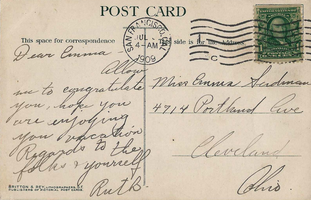 POST CARD
This space for correspondence
side is for the Address.
SAN FRANCISCO, CAL.
JUL
4-AM
1909
C
Dear Emma
Allow
me to congratulate
you, hope you
are enjoying
you vacation
Regards to the
folks & yourself
Ruth B.
Miss Emma
4714 Portland Ave
Cleveland
Ohio.
BRITTON & REY,
PUBLISHERS OF PICTORIAL POST CARDS